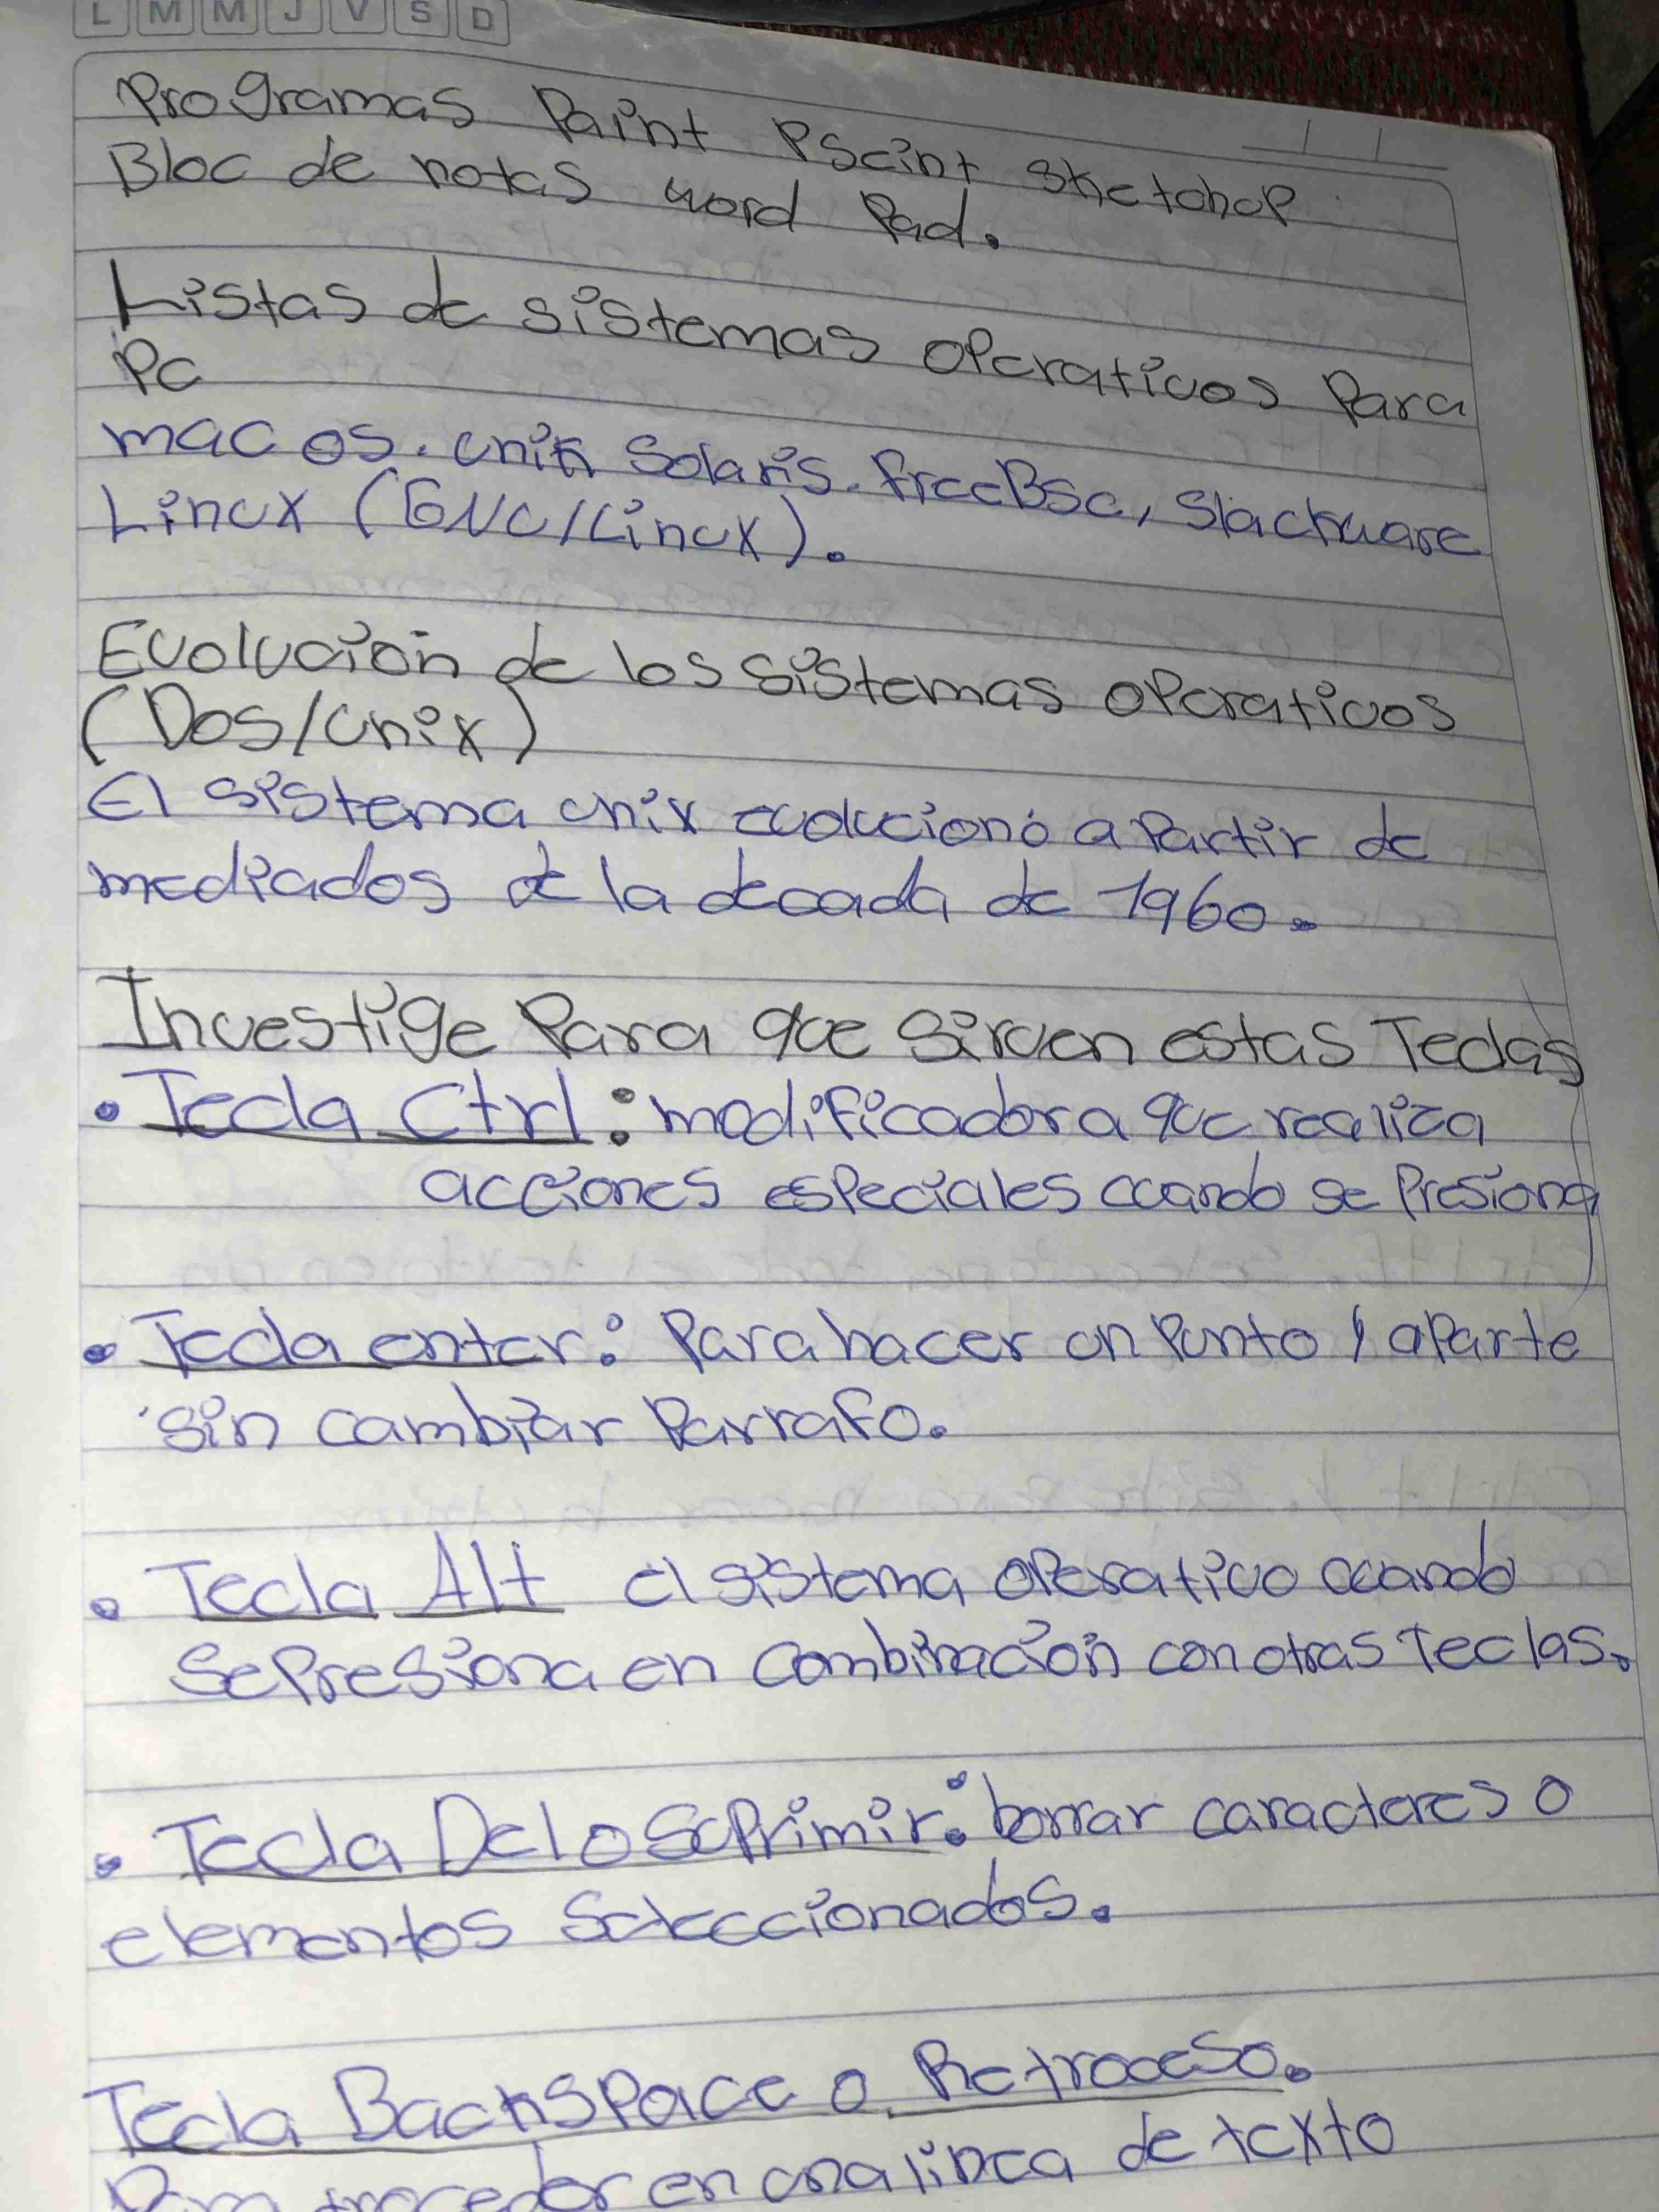 L M M J V S D
Programas Paint PSeint Sketchop
Bloc de notas word Pad.
Listas de sistemas operativos Para
Pc
mac os. unix Solaris. freeBSC, Slackware
Linux (GNU/Linux).
Evolución de los sistemas operativos
(Dos/Unix)
El sistema unix evolucionó a Partir de
mediados de la decada de 1960.
Investige Para que sirven estas Teclas
• Tecla Ctrl: modificadora que realiza
acciones especiales cuando se Presiona
• Tecla enter: Para hacer un Punto y aparte
sin cambiar Parrafo.
• Tecla Alt el sistema operativo cuando
se Presiona en combinación con otras Teclas.
• Tecla Del o Suprimir: borrar caracteres o
elementos seleccionados.
Tecla Backspace o Retroceso.
en una linea de texto